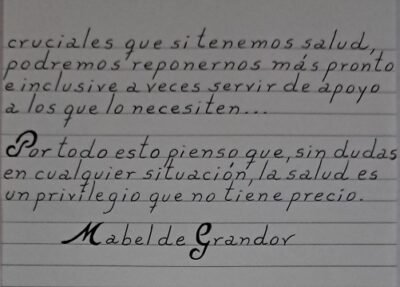 cruciales que si tenemos salud,
podremos reponernos más pronto
e inclusive a veces servir de apoyo
a los que lo necesiten...
Por todo esto pienso que, sin dudas
en cualquier situación, la salud es
un privilegio que no tiene precio.
Mabel de Grandov